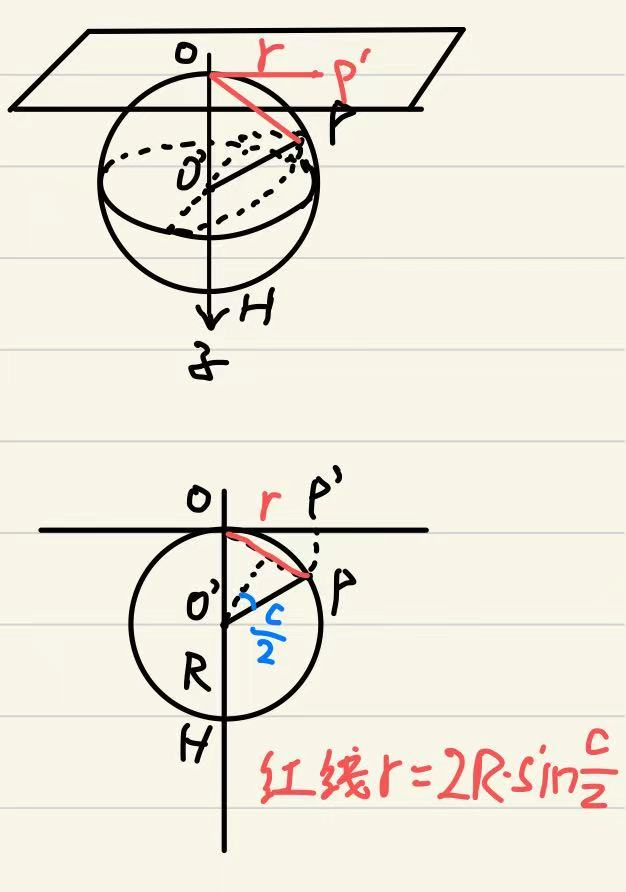 O r P'
P
O'
H
z
O r P'
O' P
c/2
R
H
红线r=2R·sin c/2